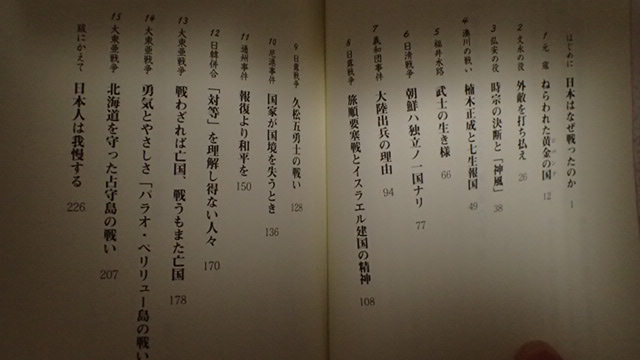 はじめに 日本はなぜ戦ったのか 1
1 元寇 ねらわれた黄金の国 12
2 文永の役 外敵を打ち払え 26
3 弘安の役 時宗の決断と「神風」 38
4 湊川の戦い 楠木正成と七生報国 49
5 福井水路 武士の生き様 66
6 日清戦争 朝鮮ハ独立ノ一国ナリ 77
7 義和団事件 大陸出兵の理由 94
8 日露戦争 旅順要塞戦とイスラエル建国の精神 108
9 日露戦争 久松五勇士の戦い 128
10 尼港事件 国家が国境を失うとき 136
11 通州事件 報復より和平を 150
12 日韓併合 「対等」を理解し得ない人々 170
13 大東亜戦争 戦わざれば亡国、戦うもまた亡国 178
14 大東亜戦争 勇気とやさしさ「パラオ・ペリリュー島の戦い
15 大東亜戦争 北海道を守った占守島の戦い 207
跋にかえて 日本人は我慢する 226